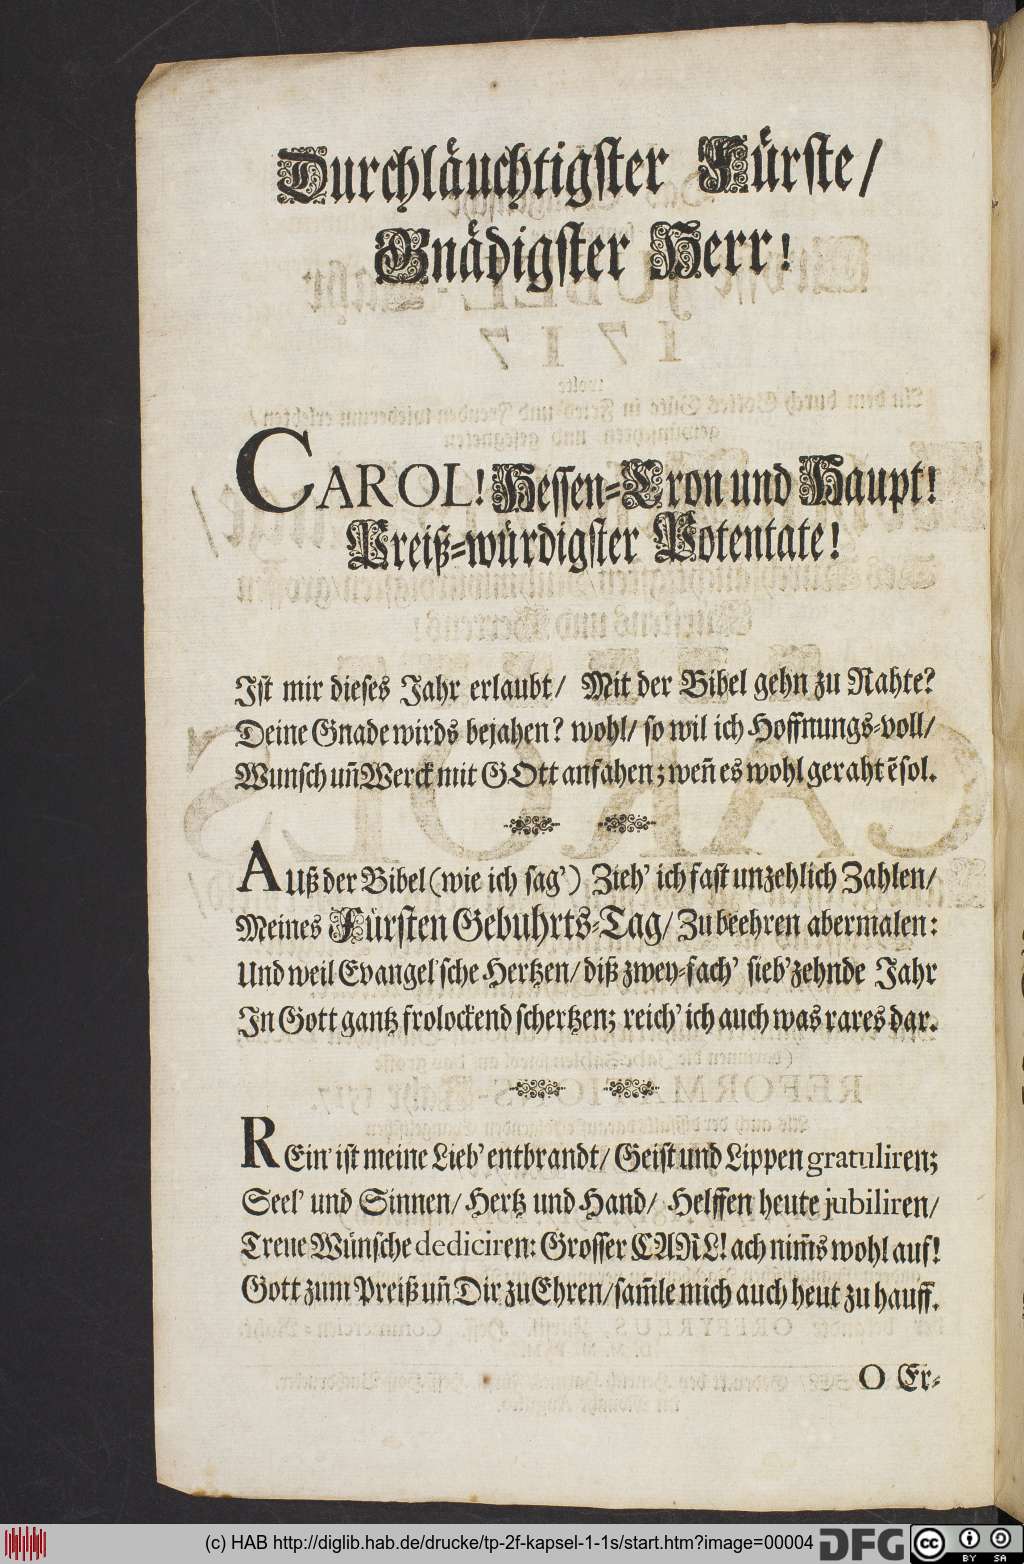 Durchläuchtigster Fürste/
Gnädigster Herr!
CAROL! Hessen-Cron und Haupt!
Preiß-würdigster Potentate!
Ist mir dieses Jahr erlaubt/ Mit der Bibel gehn zu Rahte?
Deine Gnade wirds bejahen? wohl/ so wil ich Hoffnungs-voll/
Wunsch uñ Werck mit GOtt anfahen; weñ es wohl gerahtẽ sol.
Auß der Bibel (wie ich sag') Zieh' ich fast unzehlich Zahlen/
Meines Fürsten Gebuhrts-Tag/ Zu beehren abermalen:
Und weil Evangel'sche Hertzen/ diß zwey-fach' sieb'zehnde Jahr
In Gott gantz frolockend schertzen; reich' ich auch was rares dar.
REin' ist meine Lieb' entbrandt/ Geist und Lippen gratuliren;
Seel' und Sinnen/ Hertz und Hand/ Helffen heute jubiliren/
Treue Wünsche dediciren: Grosser CARL! ach nim̃s wohl auf!
Gott zum Preiß uñ Dir zu Ehren/ sam̃le mich auch heut zu hauff.
O Er-
(c) HAB http://diglib.hab.de/drucke/tp-2f-kapsel-1-1s/start.htm?image=00004
DFG
cc BY SA